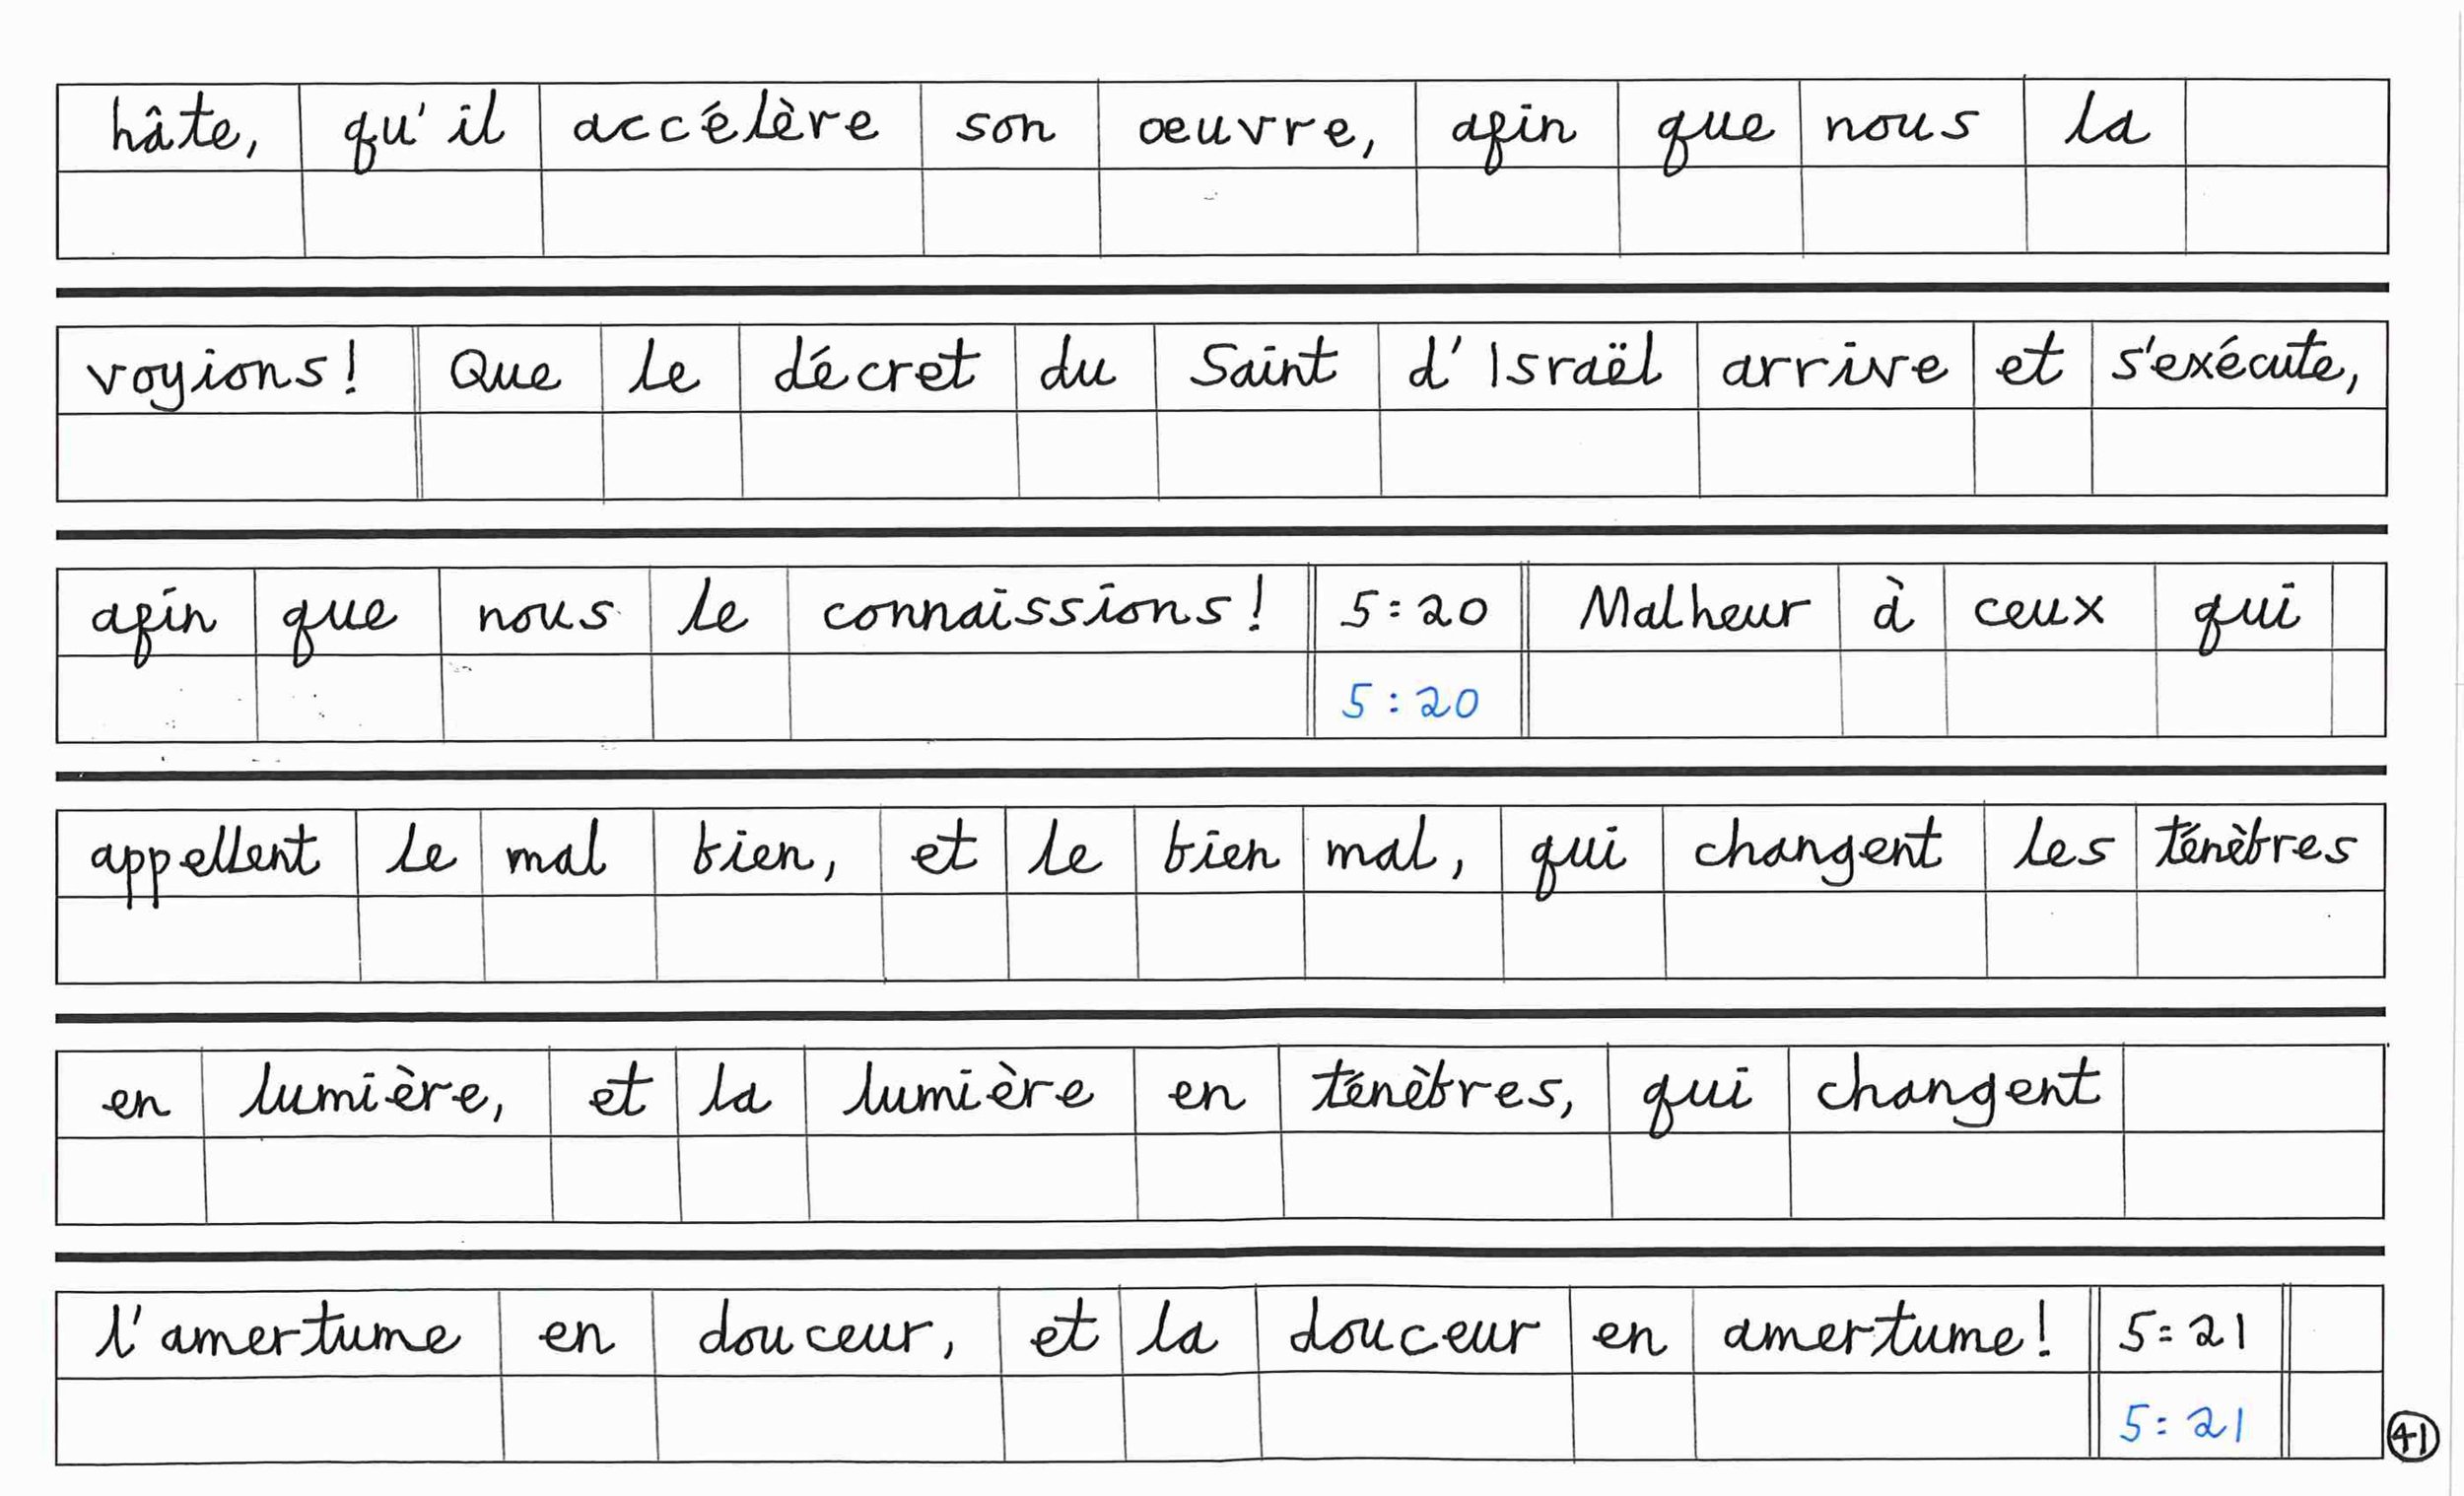 hâte, qu'il accélère son oeuvre, afin que nous la
voyions! Que le décret du Saint d'Israël arrive et s'exécute,
afin que nous le connaissions! 5:20 Malheur à ceux qui
5:20
appellent le mal bien, et le bien mal, qui changent les ténèbres
en lumière, et la lumière en ténèbres, qui changent
l'amertume en douceur, et la douceur en amertume! 5:21
5:21
41